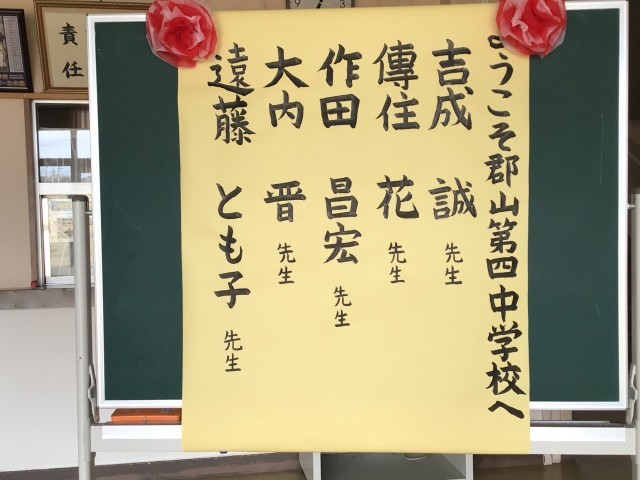 ようこそ郡山第四中学校へ
吉成 誠 先生
傳住 花 先生
作田 昌宏 先生
大内 晋 先生
遠藤 とも子 先生
責任